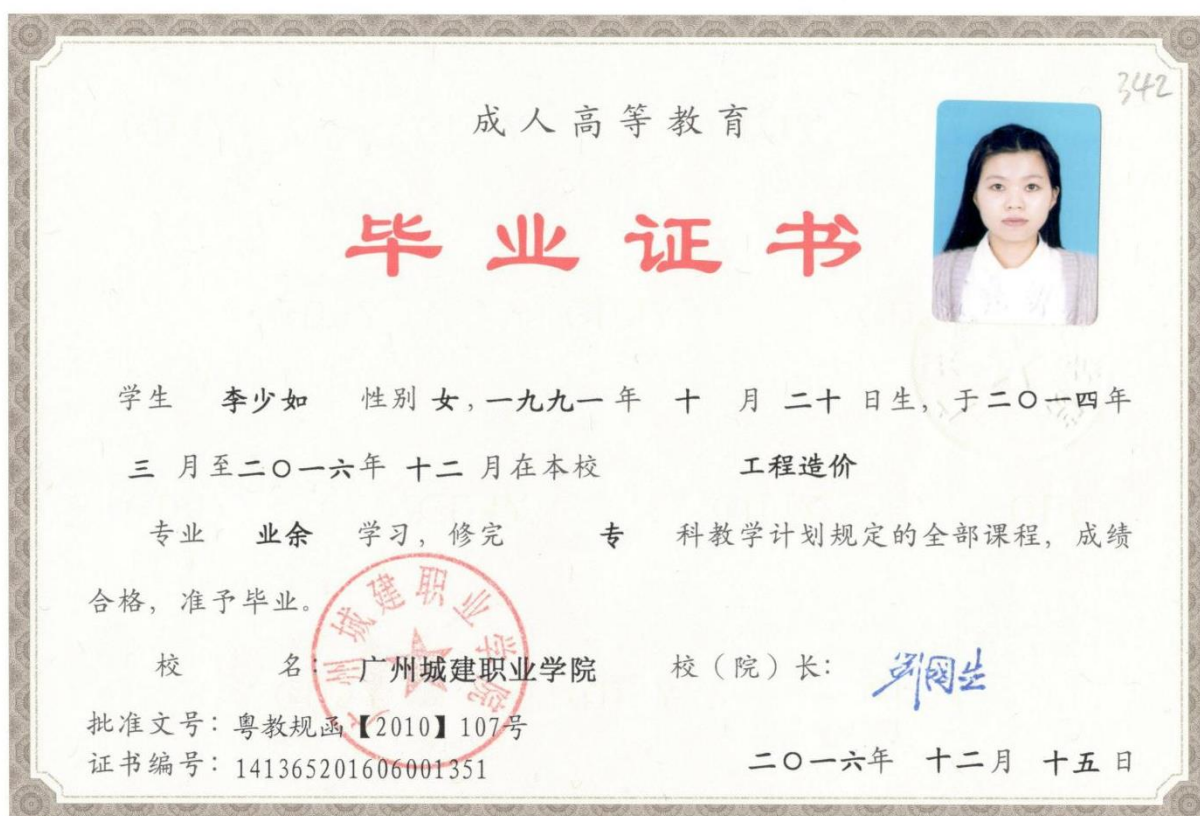 342
成人高等教育
毕业证书
学生 李少如 性别 女，一九九一年 十 月 二十 日生，于二〇一四年
三 月至二〇一六年 十二 月在本校 工程造价
专业 业余 学习，修完 专 科教学计划规定的全部课程，成绩
合格，准予毕业。
广州城建职业学院
校 名：广州城建职业学院 校（院）长：
批准文号：粤教规函【2010】107号
证书编号：141365201606001351
二〇一六年 十二月 十五日